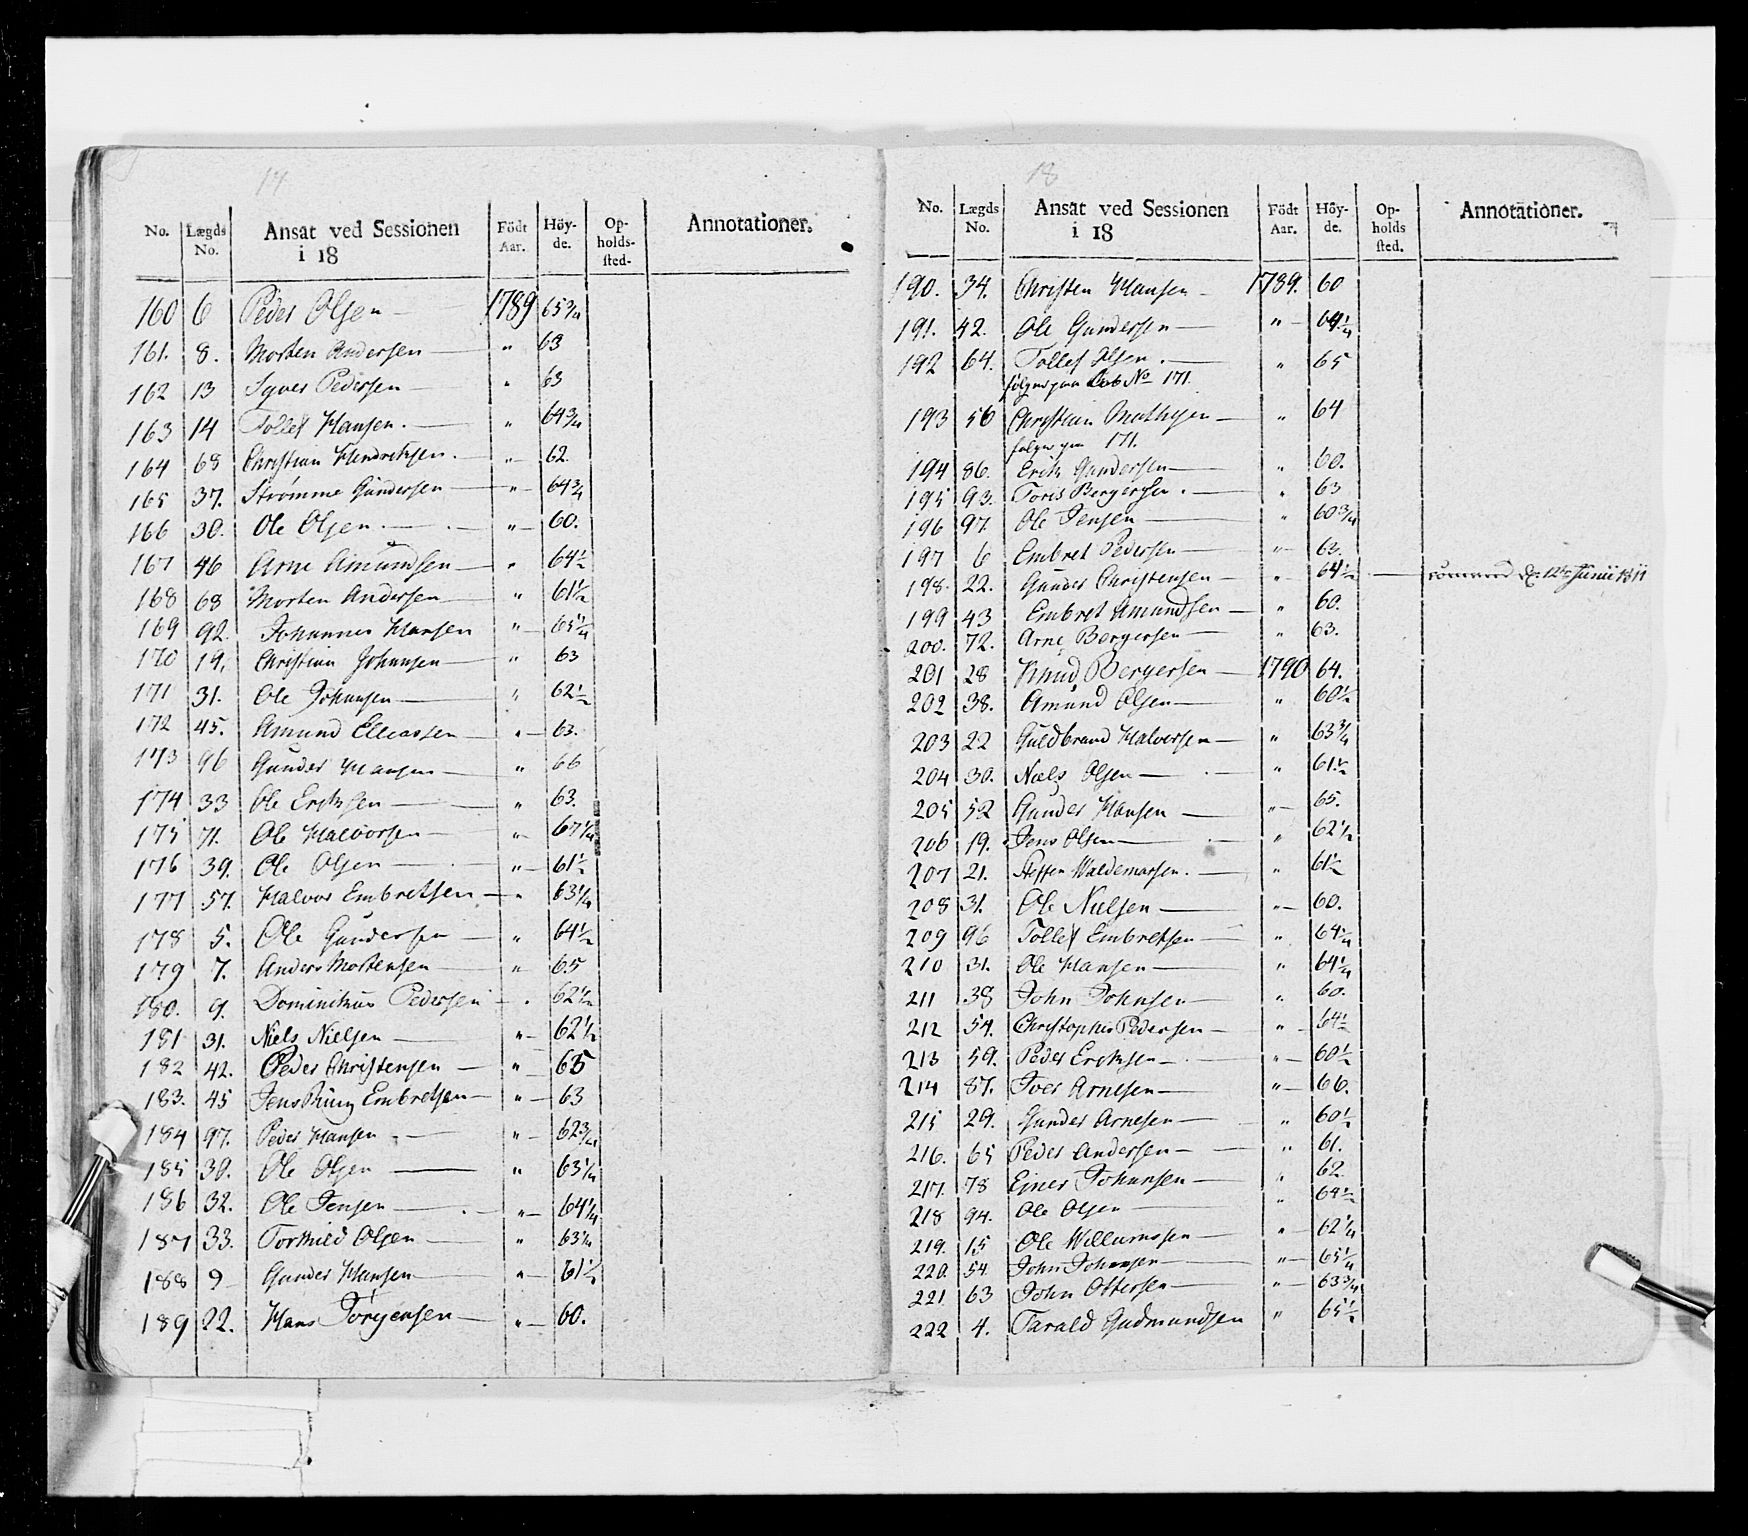 17
No. Lægds No. Ansat ved Sessionen i 18 Födt Aar. Höy-de. Op-holds-sted- Annotationer.
160 6 Peder Olsen 1789 65 3/4
161. 8. Morten Andersen " 63
162 13 Syver Pedersen " 63
163 14 Tollef Hansen. " 64 3/4
164 68 Christian Hendrichsen. " 62.
165 37. Strömme Gundersen " 64 3/4
166 30. Ole Olsen. " 60.
167 46 Arne Amundsen " 64 1/2
168 68 Morten Andersen " 61 1/2
169 92. Johannes Hansen " 65 1/4
170 19. Christian Johansen " 63
171 31. Ole Johansen " 62 1/2
172 45. Amund Elleassen " 63.
173 96 Gunder Hansen " 66
174 33 Ole Erichsen " 63.
175 71. Ole Halvorsen " 67 1/4
176 39. Ole Olsen " 61 1/2
177 57. Halvor Embretsen " 63 1/4
178 5. Ole Gundersen " 64 1/2
179 7. Anders Mortensen " 65
180. 9. Dominikus Pedersen " 62 1/2
181 31. Niels Nielsen " 62 1/2
182 42. Peder Christensen " 65
183. 45 Jens Ring Embretsen " 63
184 97. Peder Hansen " 62 3/4
185 30. Ole Olsen " 63 1/4
186 32. Ole Jensen " 64 1/4
187 33. Torkild Olsen " 63 1/4
188 9 Gunder Hansen " 61 1/2
189 22. Hans Jörgensen " 60.
18
No. Lægds No. Ansat ved Sessionen i 18 Födt Aar. Höy-de. Op-holds sted. Annotationer.
190. 34. Christen Hansen 1789. 60
191. 42. Ole Gundersen " 64 1/4
192 64. Tollef Olsen. " 65
fölger paa No 171.
193 56 Christian Mathisen " 64
fölger paa 171.
194 86. Erich Gundersen " 60.
195 93. Toris Bergersen. " 63
196 97. Ole Jensen " 60 3/4
197 6 Embret Pedersen " 63.
198. 22. Gunder Christensen " 64 1/2 d: 12te Junii 1811
199 43 Embret Amundsen " 60.
200. 72. Arne Bergersen " 63.
201 28 Knud Bergersen 1790 64.
202 38. Amund Olsen " 60 1/2
203 22 Guldbrand Halvorsen " 63 3/4
204 30. Niels Olsen " 61 1/2
205 52 Gunder Hansen " 65.
206 19. Jens Olsen " 62 1/2
207 21. Steffen Waldemarsen. " 61 1/2
208 31. Ole Nielsen " 60.
209 96 Tollef Embretsen " 64 1/4
210 31. Ole Hansen " 64 1/4
211 38 John Johnsen " 60.
212 54. Christopher Pedersen " 64 1/2
213 59. Peder Erichsen " 60 1/2
214 87. Iver Arnesen " 66.
215 29. Gunder Arnesen " 60 1/2
216. 65 Peder Andersen " 61.
217. 78 Ejner Johansen " 62
218 94. Ole Olsen " 64 1/2
219. 15 Ole Willumssen " 62 1/4
220. 54. John Johansen " 65 1/4
221 63 John Ottersen " 63 3/4
222 4. Tarald Gudmundsen " 65 1/2